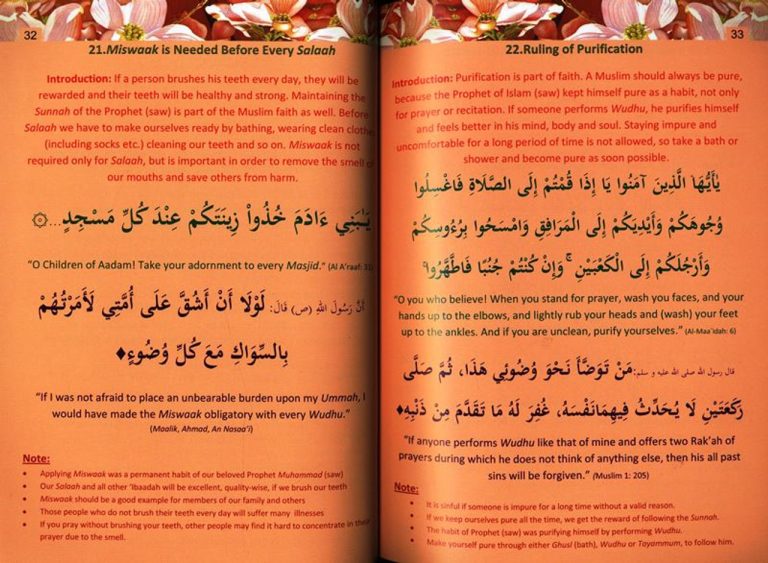 32
21.Miswaak is Needed Before Every Salaah
Introduction: If a person brushes his teeth every day, they will be
rewarded and their teeth will be healthy and strong. Maintaining the
Sunnah of the Prophet (saw) is part of the Muslim faith as well. Before
Salaah we have to make ourselves ready by bathing, wearing clean clothe
(including socks etc.) cleaning our teeth and so on. Miswaak is not
required only for Salaah, but is important in order to remove the smell of
our mouths and save others from harm.
يَـٰبَنِي ءَادَمَ خُذُواْ زِينَتَكُمْ عِندَ كُلِّ مَسْجِدٍ...۞
"O Children of Aadam! Take your adornment to every Masjid." (Al A'raaf: 31)
أنَّ رَسُولَ اللهِ (ص) قَالَ: لَوْلَا أَنْ أَشُقَّ عَلَى أُمَّتِي لَأَمَرْتُهُمْ
بِالسِّوَاكِ مَعَ كُلِّ وُضُوءٍ♦
"If I was not afraid to place an unbearable burden upon my Ummah, I
would have made the Miswaak obligatory with every Wudhu."
(Maalik, Ahmad, An Nasaa'i)
Note:
• Applying Miswaak was a permanent habit of our beloved Prophet Muhammad (saw)
• Our Salaah and all other 'Ibaadah will be excellent, quality-wise, if we brush our teeth
• Miswaak should be a good example for members of our family and others
• Those people who do not brush their teeth every day will suffer many illnesses
• If you pray without brushing your teeth, other people may find it hard to concentrate in their
prayer due to the smell.
33
22.Ruling of Purification
Introduction: Purification is part of faith. A Muslim should always be pure,
because the Prophet of Islam (saw) kept himself pure as a habit, not only
for prayer or recitation. If someone performs Wudhu, he purifies himself
and feels better in his mind, body and soul. Staying impure and
uncomfortable for a long period of time is not allowed, so take a bath or
shower and become pure as soon possible.
يٰأَيُّهَا الَّذِينَ آمَنُوا إِذَا قُمْتُمْ إِلَى الصَّلَاةِ فَاغْسِلُوا
وُجُوهَكُمْ وَأَيْدِيَكُمْ إِلَى الْمَرَافِقِ وَامْسَحُوا بِرُءُوسِكُمْ
وَأَرْجُلَكُمْ إِلَى الْكَعْبَيْنِ ۚ وَإِنْ كُنْتُمْ جُنُبًا فَاطَّهَّرُوا
"O you who believe! When you stand for prayer, wash you faces, and your
hands up to the elbows, and lightly rub your heads and (wash) your feet
up to the ankles. And if you are unclean, purify yourselves." (Al-Maa'idah: 6)
قال رسول الله صلى الله عليه و سلم: مَنْ تَوَضَّأَ نَحْوَ وُضُوئِي هَذَا، ثُمَّ صَلَّى
رَكْعَتَيْنِ لَا يُحَدِّثُ فِيهِمَانَفْسَهُ، غُفِرَ لَهُ مَا تَقَدَّمَ مِنْ ذَنْبِهِ♦
"If anyone performs Wudhu like that of mine and offers two Rak'ah of
prayers during which he does not think of anything else, then his all past
sins will be forgiven." (Muslim 1: 205)
Note:
• It is sinful if someone is impure for a long time without a valid reason.
• If we keep ourselves pure all the time, we get the reward of following the Sunnah.
• The habit of Prophet (saw) was purifying himself by performing Wudhu.
• Make yourself pure through either Ghusl (bath), Wudhu or Tayammum, to follow him.